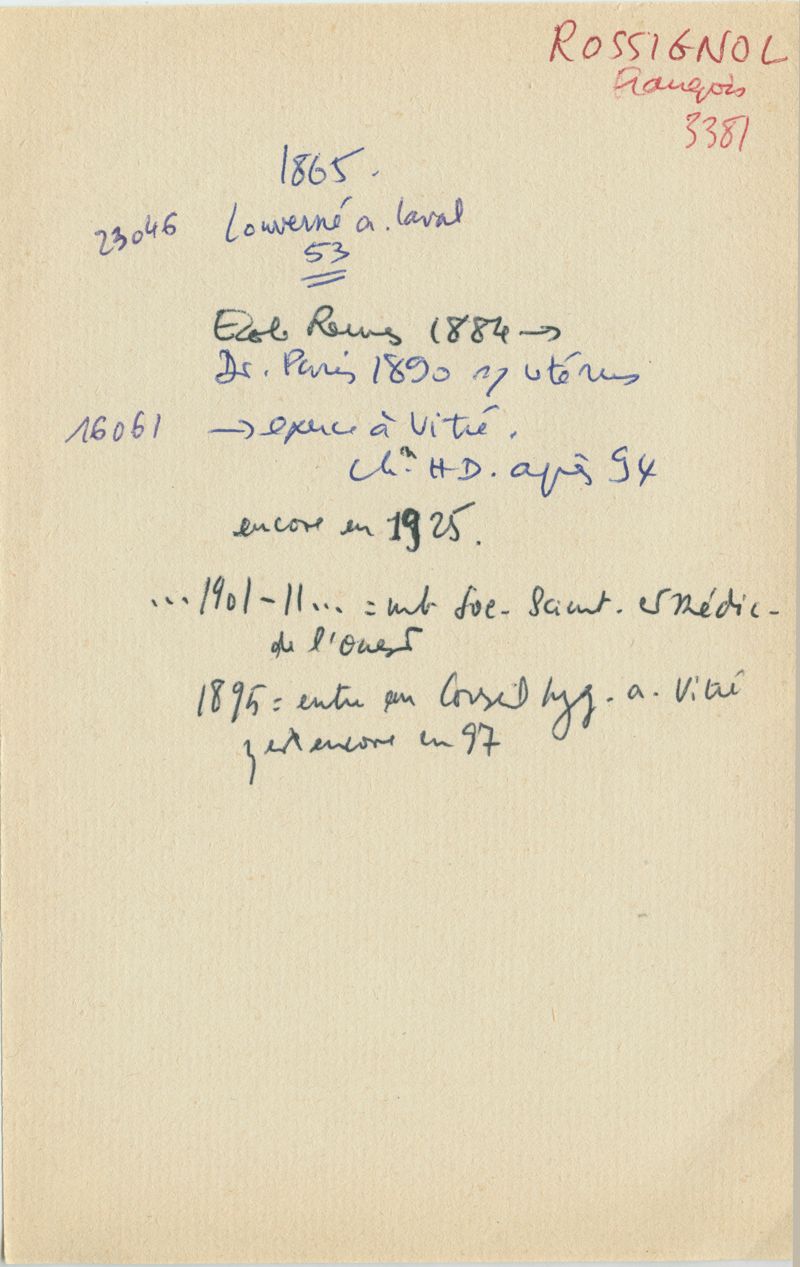 ROSSIGNOL
François
3381
1865.
23046 Louverné a. Laval
53
Ecole Rennes 1884 →
Dr. Paris 1890 s/ utérus
16061 → exerce à Vitré.
Chn H-D. après 94
encore en 1925.
...1901-11... = mb Soc. Scient. et Médic-
de l'Ouest
1895 = entre au Conseil hyg. a. Vitré
y est encore en 97